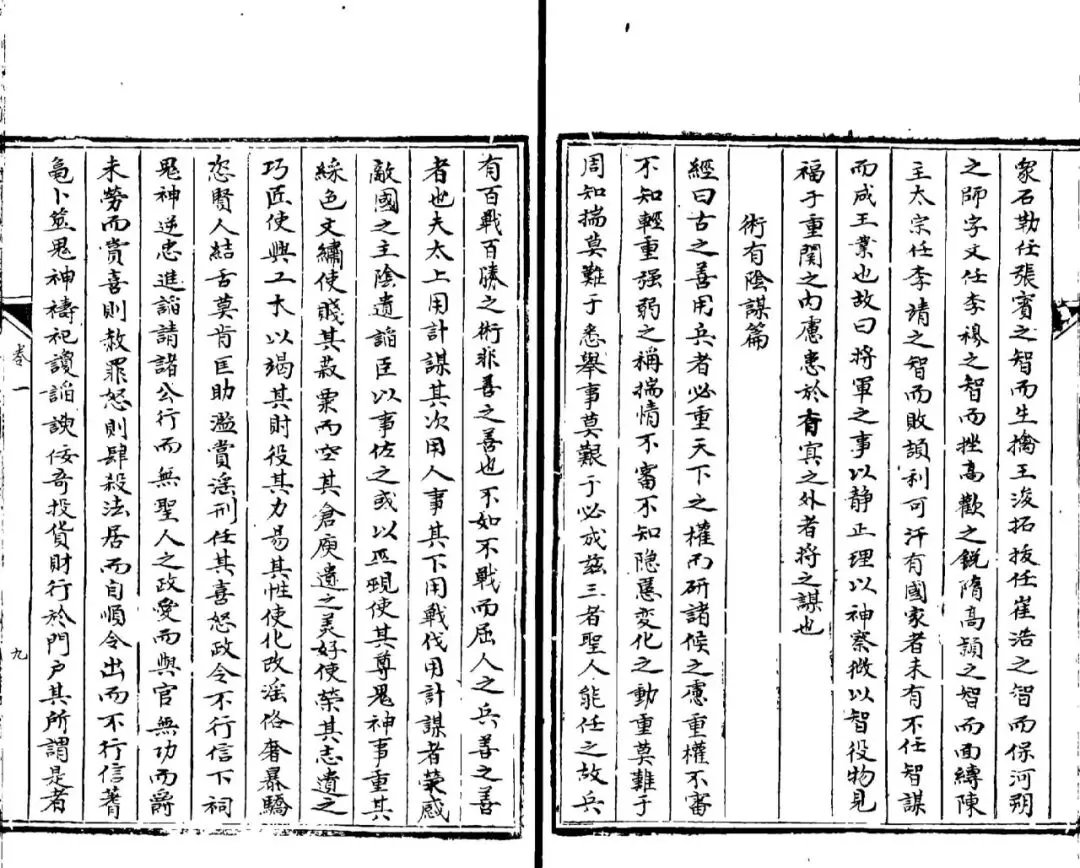 衆石勒任張賔之智而生擒王浚拓拔任崔浩之智而保河朔
之師字文任李穆之智而挫高歡之銳隋高熲之智而面縛陳
主太宗任李靖之智而敗頡利可汗有國家者未有不任智謀
而成王業也故曰将軍之事以静正理以神察微以智役物見
福于重関之内慮患於有㝠之外者将之謀也
術有陰謀篇
經曰古之善用兵者必重天下之權而研諸候之慮重權不審
不知輕重强弱之稱揣情不審不知隐匿变化之動重莫難于
周知揣莫難于悉舉事莫艱于必成兹三者聖人能任之故兵
有百戰百勝之術非善之善也不如不戰而屈人之兵善之善
者也夫太上用計謀其次用人事其下用戰伐用計謀者荣惑
敵國之主陰遺謟臣以事佐之或以巫覡使其尊鬼神事重其
綵色文繡使賤其菽粟而空其倉庾遺之美好使荣其志遺之
巧匠使興工木以竭其財役其力易其性使化改淫俗奢暴驕
恣賢人結舌莫肯匡助濫賞淫刑任其喜怒政令不行信卜祠
鬼神逆忠進謟請諸公行而無聖人之政愛而與官無功而爵
未勞而賞喜則赦罪怒則肆殺法居而自順令出而不行信蓍
龜卜筮鬼神禱祀瓊謟諛佞奇投货財行於門户其所謂是者
卷一
九